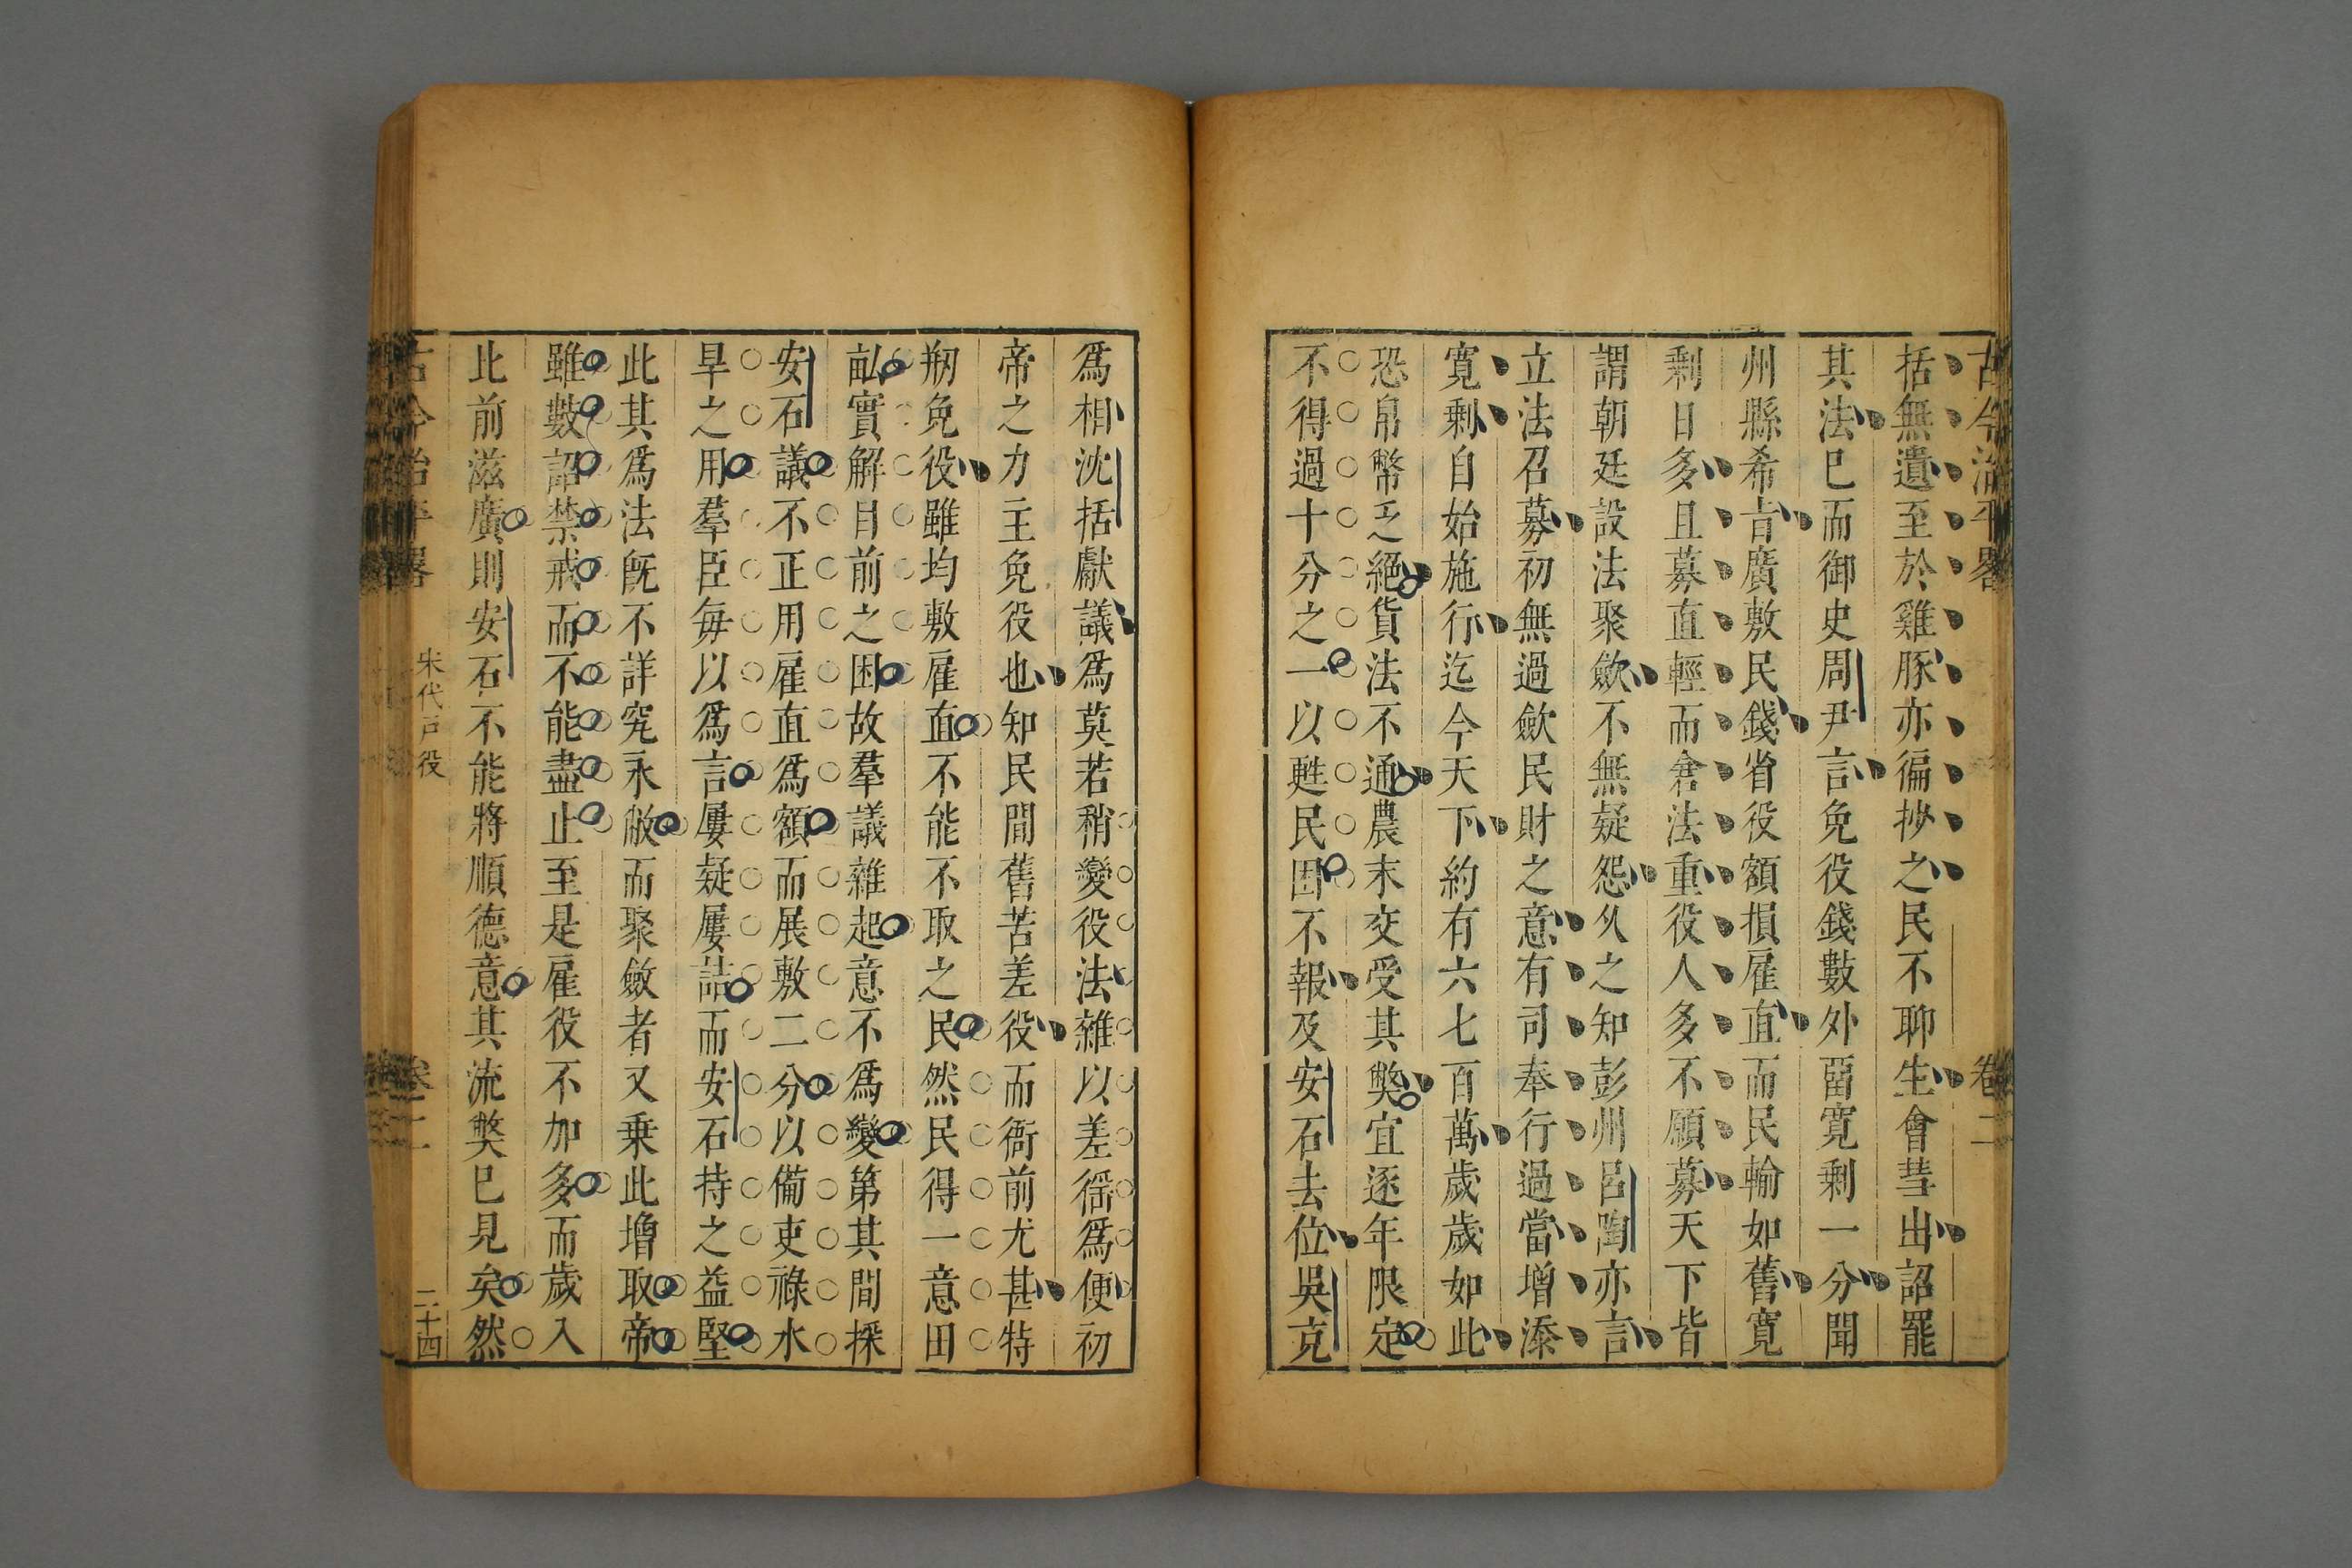 古今治平畧 卷二
括無遺至於雞豚亦徧抄之民不聊生會彗出詔罷
其法已而御史周尹言免役錢數外畱寬剩一分聞
州縣希旨廣敷民錢省役額損雇直而民輸如舊寬
剩日多且募直輕而倉法重役人多不願募天下皆
謂朝廷設法聚歛不無疑怨乆之知彭州呂陶亦言
立法召募初無過歛民財之意有司奉行過當增添
寛剩自始施行迄今天下約有六七百萬歲歲如此
恐帛幣乏絕貨法不通農末交受其獘宜逐年限定
不得過十分之一以甦民困不報及安石去位吳克
爲相沈括獻議爲莫若稍變役法雜以差徭爲便初
帝之力主免役也知民間舊苦差役而衙前尤甚特
剏免役雖均敷雇直不能不取之民然民得一意田
畝實解目前之困故羣議雜起意不爲變第其間採
安石議不正用雇直爲額而展敷二分以備吏祿水
旱之用羣臣每以爲言屢疑屢詰而安石持之益堅
此其爲法旣不詳究永敝而聚斂者又乗此增取帝
雖數詔禁戒而不能盡止至是雇役不加多而歲入
此前滋廣則安石不能將順德意其流獘已見矣然
古今治平畧 宋代戸役 卷二 二十四